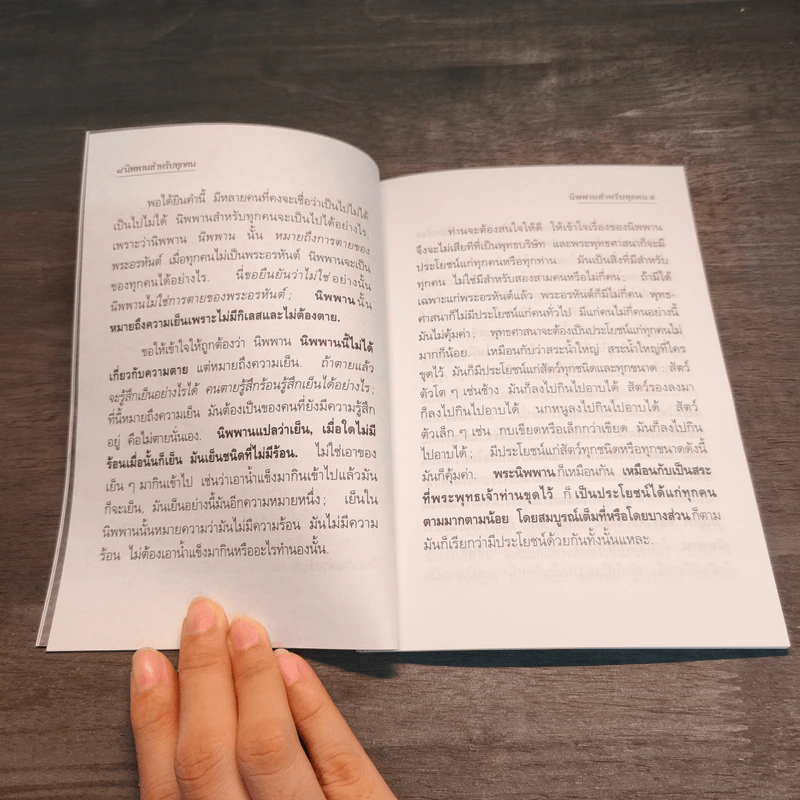 ๘/นิพพานสำหรับทุกคน
พอได้ยินคำนี้ มีหลายคนที่คงจะเชื่อว่าเป็นไปไม่ได้
เป็นไปไม่ได้ นิพพานสำหรับทุกคนจะเป็นไปได้อย่างไร,
เพราะว่านิพพาน นิพพาน นั้น หมายถึงการตายของ
พระอรหันต์ เมื่อทุกคนไม่เป็นพระอรหันต์ นิพพานจะเป็น
ของทุกคนได้อย่างไร. นี่ขอยืนยันว่าไม่ใช่ อย่างนั้น
นิพพานไม่ใช่การตายของพระอรหันต์ ; นิพพาน นั้น
หมายถึงความเย็นเพราะไม่มีกิเลสและไม่ต้องตาย.
ขอให้เข้าใจให้ถูกต้องว่า นิพพาน นิพพานนี้ไม่ได้
เกี่ยวกับความตาย แต่หมายถึงความเย็น. ถ้าตายแล้ว
จะรู้สึกเย็นอย่างไรได้ คนตายรู้สึกร้อนรู้สึกเย็นได้อย่างไร ;
ที่นี้หมายถึงความเย็น มันต้องเป็นของคนที่ยังมีความรู้สึก
อยู่ คือไม่ตายนั่นเอง. นิพพานแปลว่าเย็น, เมื่อใดไม่มี
ร้อนเมื่อนั้นก็เย็น มันเย็นชนิดที่ไม่มีร้อน. ไม่ใช่เอาของ
เย็น ๆ มากินเข้าไป เช่นว่าเอาน้ำแข็งมากินเข้าไปแล้วมัน
ก็จะเย็น, มันเย็นอย่างนี้มันอีกความหมายหนึ่ง ; เย็นใน
นิพพานนั้นหมายความว่ามันไม่มีความร้อน มันไม่มีความ
ร้อน ไม่ต้องเอาน้ำแข็งมากินหรืออะไรทำนองนั้น.
นิพพานสำหรับทุกคน ๙
ท่านจะต้องสนใจให้ดี ให้เข้าใจเรื่องของนิพพาน
จึงจะไม่เสียทีที่เป็นพุทธบริษัท และพระพุทธศาสนาก็จะมี
ประโยชน์แก่ทุกคนหรือทุกท่าน มันเป็นสิ่งที่มีสำหรับ
ทุกคน ไม่ใช่มีสำหรับสองสามคนหรือไม่กี่คน ; ถ้ามีได้
เฉพาะแก่พระอรหันต์แล้ว พระอรหันต์ก็มีไม่กี่คน พุทธ-
ศาสนาก็ไม่มีประโยชน์แก่คนทั่วไป มีแก่คนไม่กี่คนอย่างนี้
มันไม่คุ้มค่า ; พุทธศาสนาจะต้องเป็นประโยชน์แก่ทุกคนไม่
มากก็น้อย. เหมือนกับว่าสระน้ำใหญ่ สระน้ำใหญ่ที่ใคร
ขุดไว้ มันก็มีประโยชน์แก่สัตว์ทุกชนิดและทุกขนาด : สัตว์
ตัวโต ๆ เช่นช้าง มันก็ลงไปกินไปอาบได้ สัตว์รองลงมา
ก็ลงไปกินไปอาบได้ นกหนูลงไปกินไปอาบได้ สัตว์
ตัวเล็ก ๆ เช่น กบเขียดหรือเล็กกว่าเขียด มันก็ลงไปกิน
ไปอาบได้ ; มีประโยชน์แก่สัตว์ทุกชนิดหรือทุกขนาดดังนี้
มันก็คุ้มค่า. พระนิพพาน ก็เหมือนกัน เหมือนกับเป็นสระ
ที่พระพุทธเจ้าท่านขุดไว้ ก็ เป็นประโยชน์ได้แก่ทุกคน
ตามมากตามน้อย โดยสมบูรณ์เต็มที่หรือโดยบางส่วน ก็ตาม
มันก็เรียกว่ามีประโยชน์ด้วยกันทั้งนั้นแหละ.